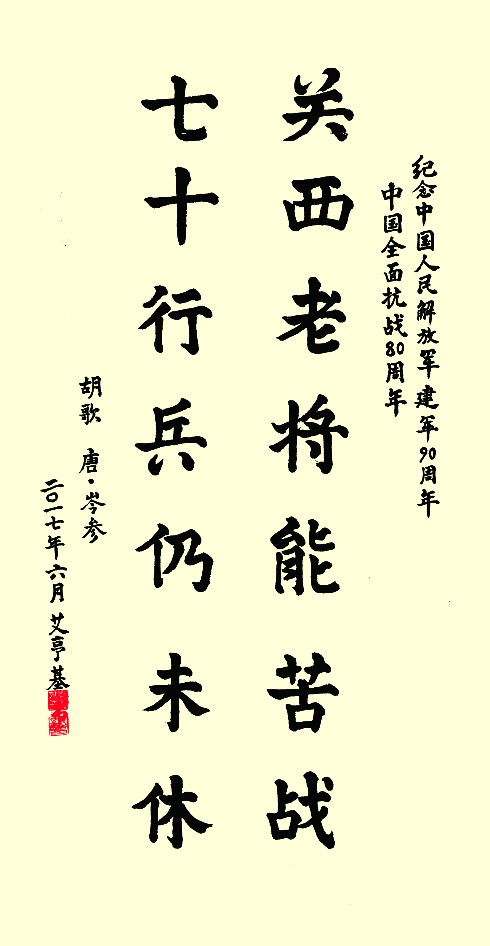 纪念中国人民解放军建军90周年
中国全面抗战80周年
关西老将能苦战
七十行兵仍未休
胡歌 唐·岑参
二〇一七年六月 艾亨基